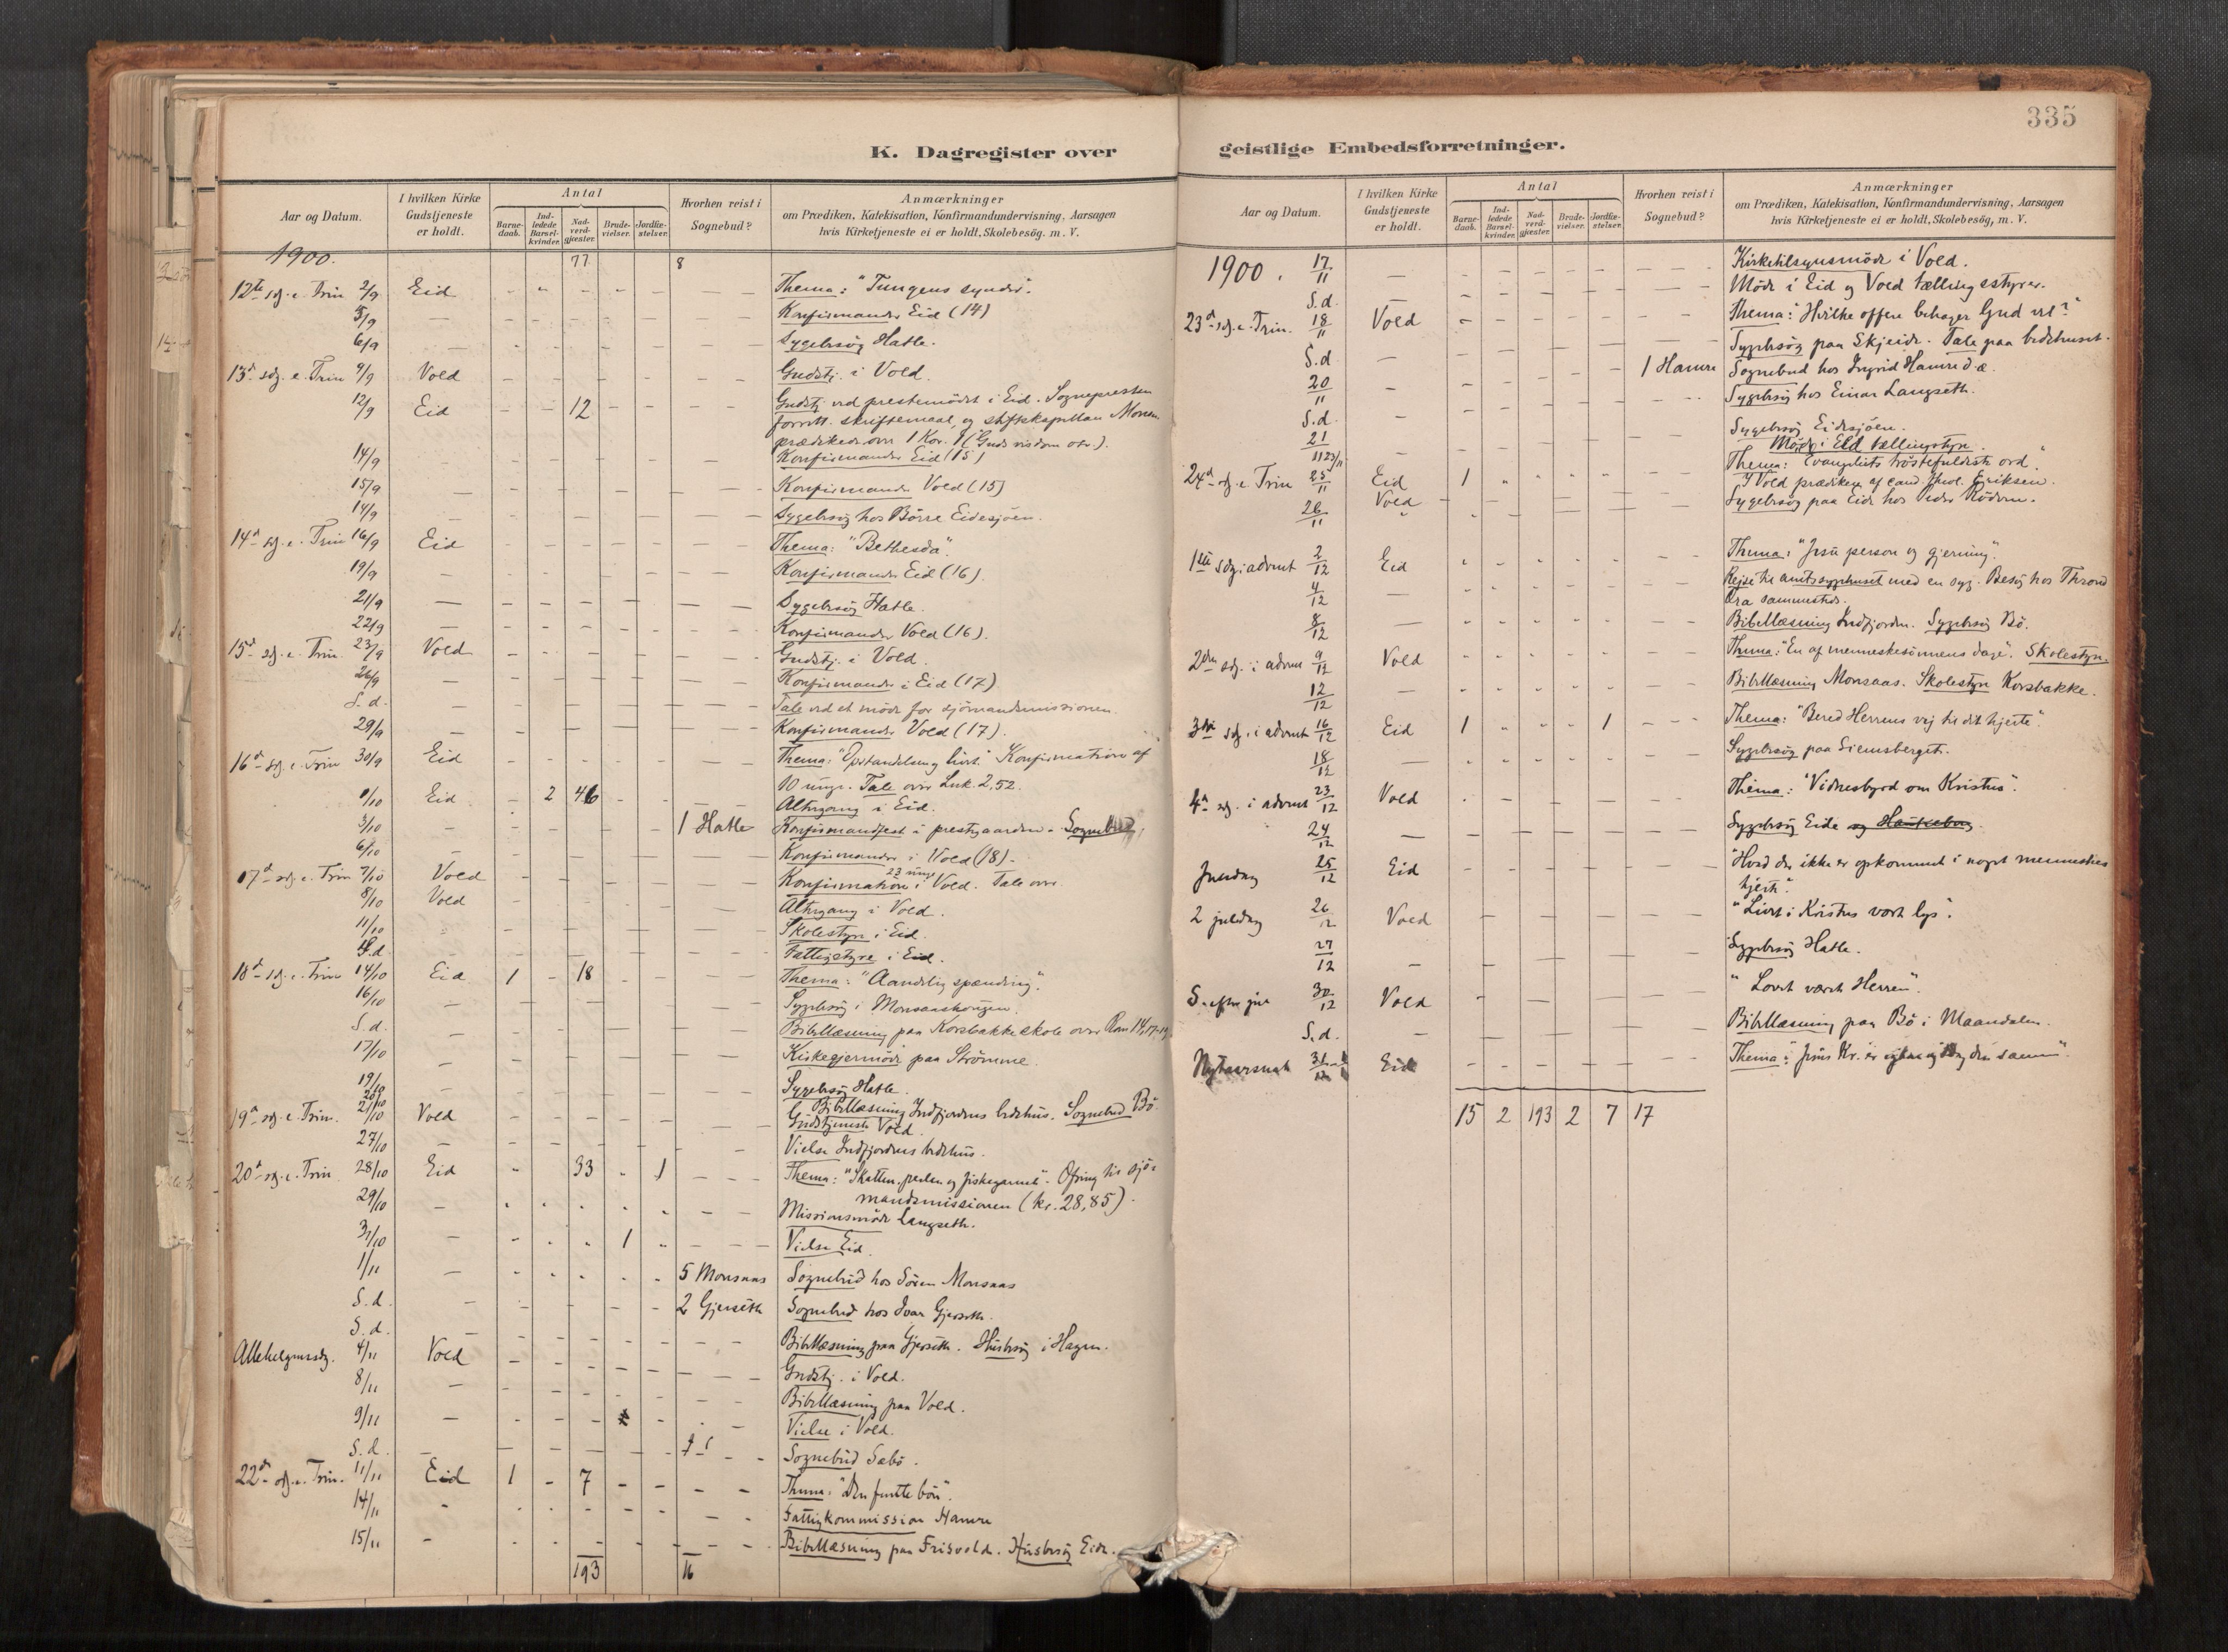 K. Dagregister over
Aar og Datum.
I hvilken Kirke Gudstjeneste er holdt.
Antal
Barne-daab.
Ind-ledede Barsel-kvinder.
Nad-verd-gjæster.
Brude-vielser.
Jordfæ-stelser.
Hvorhen reist i Sognebud?
Anmærkninger
om Prædiken, Katekisation, Konfirmandundervisning, Aarsagen
hvis Kirketjeneste ei er holdt, Skolebesög. m. V.
1900. 77 8
12te sdg. e. Trin 2/9 Eid - - - - - Thema: "Tungens synder".
5/9 Konfirmander Eid (14)
6/9 Sygebesøg Hatle.
13d sdg. e. Trin 9/9 Vold Gudstj. i Vold.
12/9 Eid - - 12 Gudstj ved prestemödet i Eid. Sognepresten
forrett. skriftemaal, og stiftskapellan
prædikede over 1 Kor. 1 (Guds visdom osv.).
14/9 Konfirmander Eid (15)
15/9 Konfirmander Vold (15)
14/9 Sygebesøg hos Börre Eidesjöen.
14d sdg. e. Trin 16/9 Eid Thema: "Bethesda".
19/9 Konfirmander Eid (16).
21/9 Sygebesøg Hatle.
22/9 Konfirmander Vold (16).
15d sdg. e. Trin. 23/9 Vold Gudstj. i Vold.
26/9 Konfirmander i Eid (17)
S. d. Tale ved et möde for sjömandsmissionen.
29/9 Konfirmander Vold (17).
16d sdg. e. Trin 30/9 Eid Thema: "Opstandelse og livet". Konfirmation af
10 unge. Tale over Luk. 2,52.
1/10 Eid - 2 46 Altergang i Eid.
3/10 1 Hatle Konfirmandfest i prestgaarden. Sognebud
6/10 Konfirmander i Vold (18).
17d sdg. e. Trin 7/10 Vold Konfirmation i Vold. Tale over
23 unge
8/10 Vold Altergang i Vold.
11/10 Skolestyre i Eid.
S.d. Fattigstyre i Eid.
18d sdg. e. Trin 14/10 Eid 1 - 18 Thema: "Aandelig spænding".
16/10 Sygebesøg i Monsaashougen.
S. d. Bibellæsning paa Korsbakke skole over Rom 14,17-19
17/10 Kirkegjermöde paa Strömme.
19/10 Sygebesøg Hatle.
20/10 Bibellæsning Indfjordens bedehus. Sognebud Bö.
19d sdg. e. Trin. 21/10 Vold Gudstjeneste Vold.
27/10 Vielse Indfjordens bedehus.
20d sdg. e. Trin 28/10 Eid - 33 - 1 Thema: "Skatten, perlen og fiskegarnet". Ofring til sjö-
mandsmissionen (kr. 28,85).
29/10 Missionsmöde Langseth.
31/10 1 Vielse Eid.
1/11 5 Monsaas Sognebud hos Sören Monsaas
S. d. 2 Gjerseth Sognebud hos Ivar Gjerseth.
S. d. Bibellæsning paa Gjerseth. Husbesøg i Hagen.
Allehelgensdg. 4/11 Vold Gudstj. i Vold.
8/11 Bibellæsning paa Vold.
9/11 Vielse i Vold.
S. d. Sognebud Sæbö.
22d sdg. e. Trin. 11/11 Eid 1 - 7 Thema: "Den femte bön".
14/11 Fattigkommission Hamre
15/11 Bibellæsning paa Frisvold. Husbesøg Eide.
193 16
335
geistlige Embedsforretninger.
Aar og Datum.
I hvilken Kirke Gudstjeneste er holdt.
Antal
Barne-daab.
Ind-ledede Barsel-kvinder.
Nad-verd-gjæster.
Brude-vielser.
Jordfæ-stelser.
Hvorhen reist i Sognebud?
Anmærkninger
om Prædiken, Katekisation, Konfirmandundervisning, Aarsagen
hvis Kirketjeneste ei er holdt, Skolebesög, m. V.
1900. 17/11 Kirketilsynsmöde i Vold.
S.d. Möde i Eid og Vold tællingsstyrer.
23d sdg. e. Trin. 18/11 Vold Thema: "Hvilke offere behager Gud vel?"
S.d Sygebesøg paa Skjeide. Tale paa bedehuset.
20/11 1 Hamre Sognebud hos Ingrid Hamre d.æ.
S.d. Sygebesøg hos Einar Langseth.
21/11 Sygebesøg Eidesjöen.
23/11 Möde i Eid tællingstyre.
24d sdg. e. Trin 25/11 Eid 1 Thema: Evangeliets tröstefuldeste ord".
Vold I Vold prædiken af cand. theol. Eriksen.
26/11 Sygebesøg paa Eide hos Peder Rödven.
1ste sdg. i advent 2/12 Eid Thema: "Jesu person og gjerning".
4/12 Rejse til amtssygehuset med en syg. Besøg hos Thrond
Öra sammesteds.
8/12 Bibellæsning Indfjorden. Sygebesøg Bö.
2den sdg. i advent 9/12 Vold Thema: "En af menneskesönnens dage". Skolestyre.
12/12 Bibellæsning Monsaas. Skolestyre Korsbakke.
3die sdg. i advent 16/12 Eid 1 - - - 1 Thema: "Bered Herrens vej til dit hjerte".
18/12 Sygebesøg paa Siemsberget.
4d sdg. i advent 23/12 Vold Thema: "Vidnesbyrd om Kristus".
24/12 Sygebesøg Eide
Juledag 25/12 Eid "Hvad der ikke er opkommet i noget menneskes
hjerte".
2 juledag 26/12 Vold "Livet i Kristus vort lys".
27/12 Sygebesøg Hatle.
S. efter jul 30/12 Vold "Lovet været Herren".
S.d. Bibellæsning paa Bö i Maandalen.
Nytaarsnat 31/12 Eid Thema: "Jesus Kr. er igaar og idag den samme".
15 2 193 2 7 17